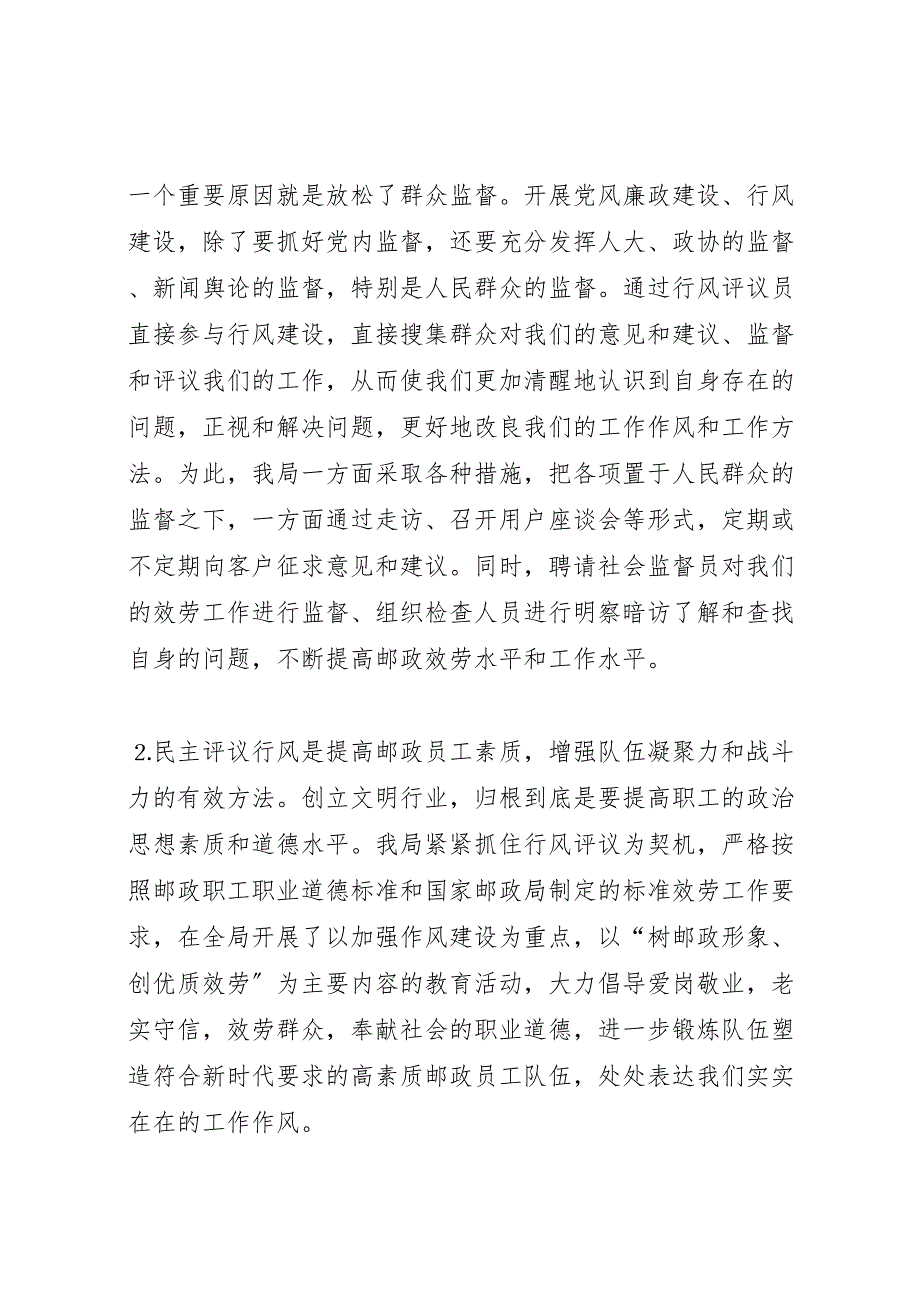 一个重要原因就是放松了群众监督。开展党风廉政建设、行风
建设，除了要抓好党内监督，还要充分发挥人大、政协的监督
、新闻舆论的监督，特别是人民群众的监督。通过行风评议员
直接参与行风建设，直接搜集群众对我们的意见和建议、监督
和评议我们的工作，从而使我们更加清醒地认识到自身存在的
问题，正视和解决问题，更好地改良我们的工作作风和工作方
法。为此，我局一方面采取各种措施，把各项置于人民群众的
监督之下，一方面通过走访、召开用户座谈会等形式，定期或
不定期向客户征求意见和建议。同时，聘请社会监督员对我们
的效劳工作进行监督、组织检查人员进行明察暗访了解和查找
自身的问题，不断提高邮政效劳水平和工作水平。
2.民主评议行风是提高邮政员工素质，增强队伍凝聚力和战斗
力的有效方法。创立文明行业，归根到底是要提高职工的政治
思想素质和道德水平。我局紧紧抓住行风评议为契机，严格按
照邮政职工职业道德标准和国家邮政局制定的标准效劳工作要
求，在全局开展了以加强作风建设为重点，以“树邮政形象、
创优质效劳〞为主要内容的教育活动，大力倡导爱岗敬业，老
实守信，效劳群众，奉献社会的职业道德，进一步锻炼队伍塑
造符合新时代要求的高素质邮政员工队伍，处处表达我们实实
在在的工作作风。